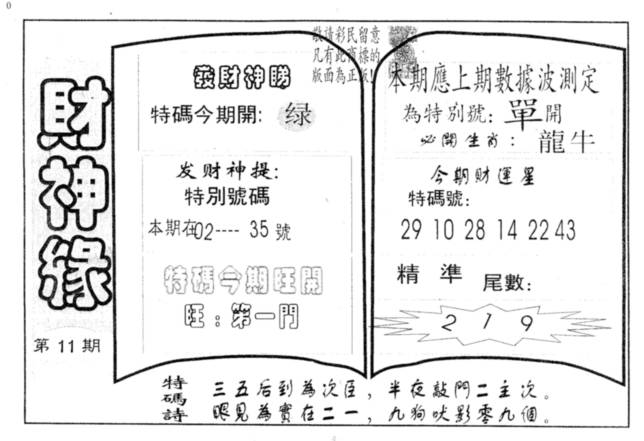 0
敬請彩民留意
凡有此商標的
版面為正版!
財神緣
第11期
發財神睇
特碼今期開: 绿
发财神提:
特別號碼
本期在02---- 35 號
特碼今期旺開
旺:第一門
本期應上期數據波測定
為特別號:單開
必開生肖:龍牛
今期財運星
特碼號:
29 10 28 14 22 43
精準 尾數:
2 1 9
特碼詩
三五后到為次臣,半夜敲門二主次。
眼見為實在二一,九狗吠影零九個。